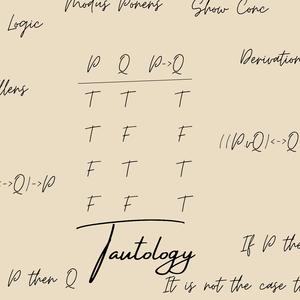 Modus Ponens
Show Conc
Logic
P Q P->Q
Derivation
llens
T T T
T F F
((PvQ)<->Q)
F T T
<->Q)->P
F F T
Tautology
If P the
P then Q
It is not the case t